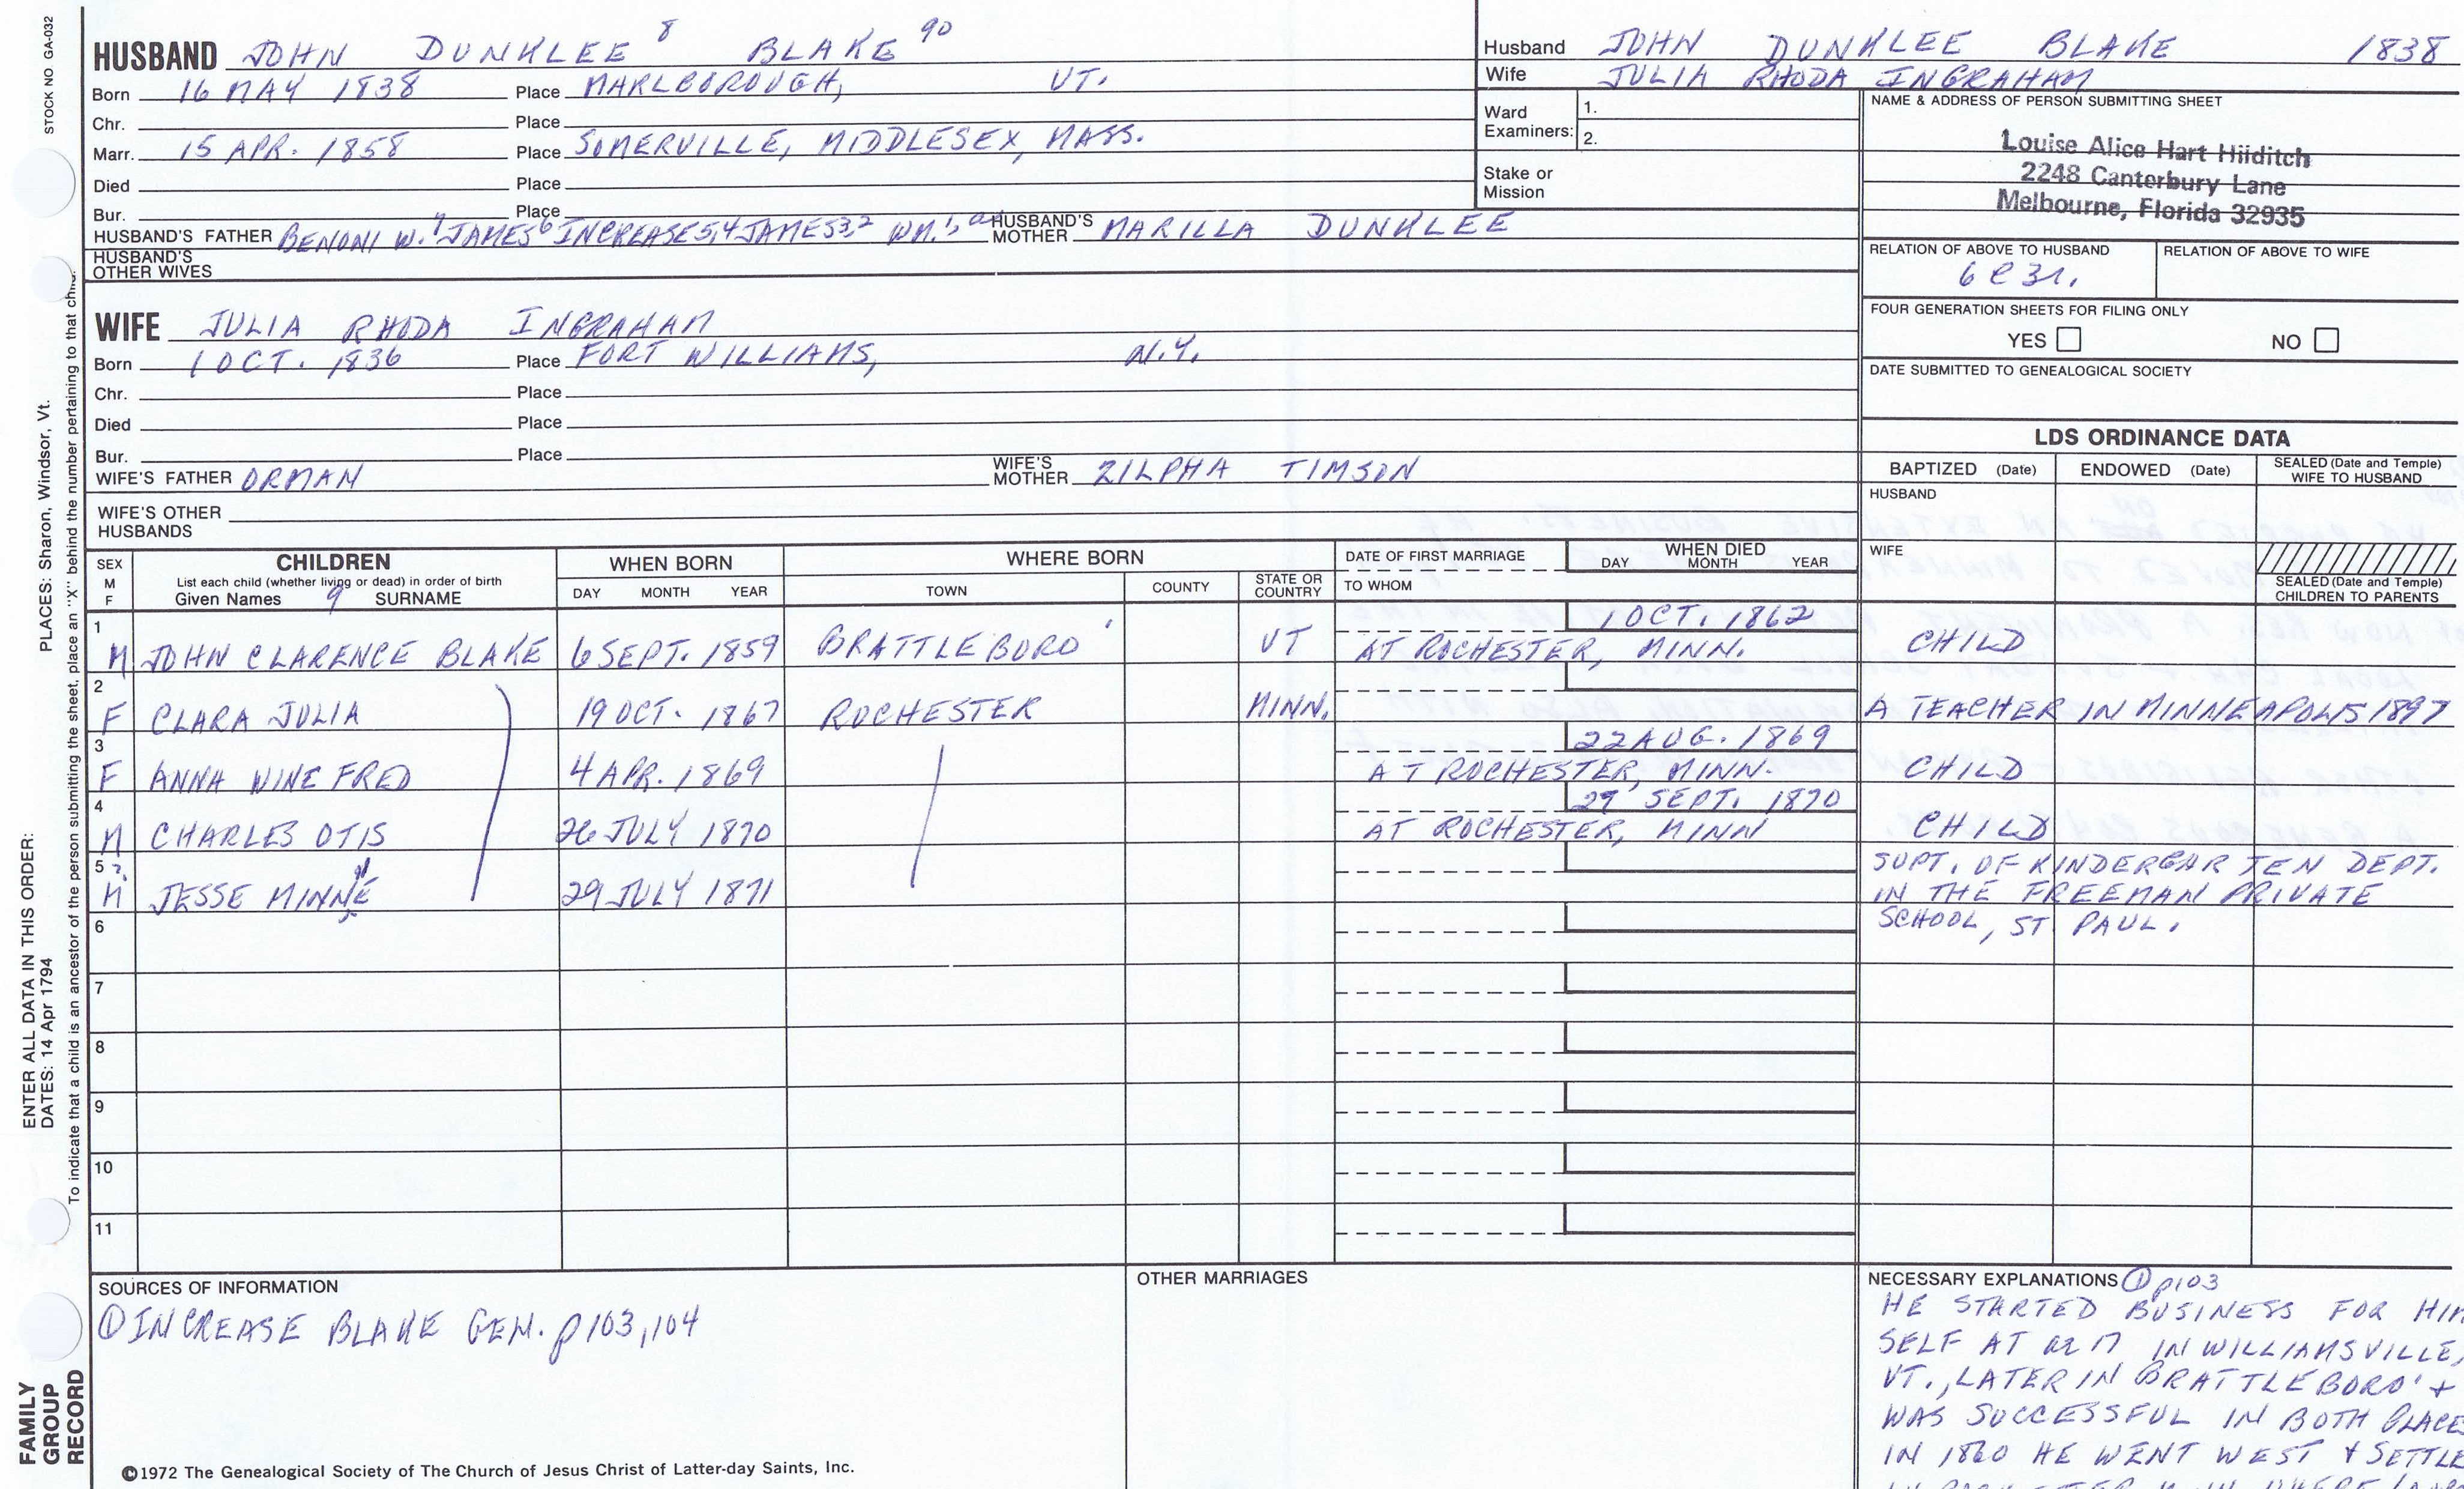 STOCK NO GA-032
HUSBAND JOHN DUNKLEE 8 BLAKE 90
Born 16 MAY 1838 Place MARLBOROUGH, VT.
Chr. Place
Marr. 15 APR. 1858 Place SOMERVILLE, MIDDLESEX, MASS.
Died Place
Bur. Place
HUSBAND'S FATHER BENONI W. 7 JAMES 6 INCREASE 5,4 JAMES 3,2 WM. 1, HUSBAND'S MOTHER MARILLA DUNKLEE
HUSBAND'S OTHER WIVES
Husband JOHN DUNKLEE BLAKE 1838
Wife JULIA RHODA INGRAHAM
Ward Examiners: 1.
2.
Stake or Mission
NAME & ADDRESS OF PERSON SUBMITTING SHEET
Louise Alice Hart Hilditch
2248 Canterbury Lane
Melbourne, Florida 32935
RELATION OF ABOVE TO HUSBAND RELATION OF ABOVE TO WIFE
6C3r.
FOUR GENERATION SHEETS FOR FILING ONLY
YES NO
DATE SUBMITTED TO GENEALOGICAL SOCIETY
WIFE JULIA RHODA INGRAHAM
Born 1 OCT. 1836 Place FORT WILLIAMS, N.Y.
Chr. Place
Died Place
Bur. Place
WIFE'S FATHER ORMAN WIFE'S MOTHER ZILPHA TIMSON
WIFE'S OTHER HUSBANDS
LDS ORDINANCE DATA
BAPTIZED (Date) ENDOWED (Date) SEALED (Date and Temple) WIFE TO HUSBAND
HUSBAND
WIFE
SEALED (Date and Temple) CHILDREN TO PARENTS
SEX M F CHILDREN WHEN BORN WHERE BORN DATE OF FIRST MARRIAGE WHEN DIED
List each child (whether living or dead) in order of birth
Given Names 9 SURNAME DAY MONTH YEAR TOWN COUNTY STATE OR COUNTRY TO WHOM DAY MONTH YEAR
1 1 OCT. 1862
M JOHN CLARENCE BLAKE 6 SEPT. 1859 BRATTLEBORO' VT AT ROCHESTER, MINN. CHILD
2
F CLARA JULIA 19 OCT. 1867 ROCHESTER MINN. A TEACHER IN MINNEAPOLIS 1897
3 22 AUG. 1869
F ANNA WINEFRED 4 APR. 1869 AT ROCHESTER, MINN. CHILD
4 29 SEPT. 1870
M CHARLES OTIS 26 JULY 1870 AT ROCHESTER, MINN CHILD
5 ?
M JESSE MINNE 29 JULY 1871 SUPT. OF KINDERGARTEN DEPT.
IN THE FREEMAN PRIVATE
SCHOOL, ST PAUL.
6
7
8
9
10
11
SOURCES OF INFORMATION
① INCREASE BLAKE GEN. p103,104
OTHER MARRIAGES
NECESSARY EXPLANATIONS ① p103
HE STARTED BUSINESS FOR HIM
SELF AT ae 17 IN WILLIAMSVILLE,
VT., LATER IN BRATTLEBORO' +
WAS SUCCESSFUL IN BOTH PLACES
IN 1860 HE WENT WEST & SETTLE
©1972 The Genealogical Society of The Church of Jesus Christ of Latter-day Saints, Inc.
FAMILY GROUP RECORD
ENTER ALL DATA IN THIS ORDER:
DATES: 14 Apr 1794
PLACES: Sharon, Windsor, Vt.
To indicate that a child is an ancestor of the person submitting the sheet, place an "X" behind the number pertaining to that child.